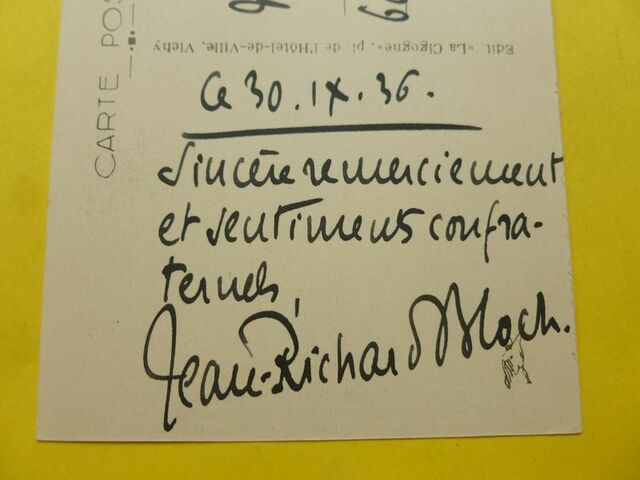 CARTE POS
Edit. «La Cigogne», pl. de l'Hôtel-de-Ville, Vichy
Ce 30.IX.36.
Sincère remerciement
et sentiments confra-
ternels,
Jean-Richard Bloch.